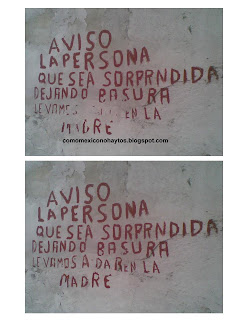 AVISO
LA PERSONA
QUE SEA SORPRNDIDA
DEJANDO BASURA
LE VAMOS EN LA
MADRE
comomexiconohaytos.blogspot.com
AVISO
LA PERSONA
QUE SEA SORPRNDIDA
DEJANDO BASURA
LE VAMOS A DAR EN LA
MADRE